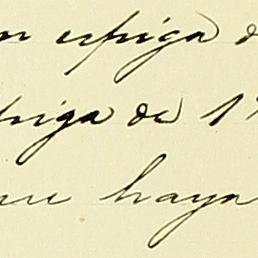 espiga d
spiga de 1
que haya